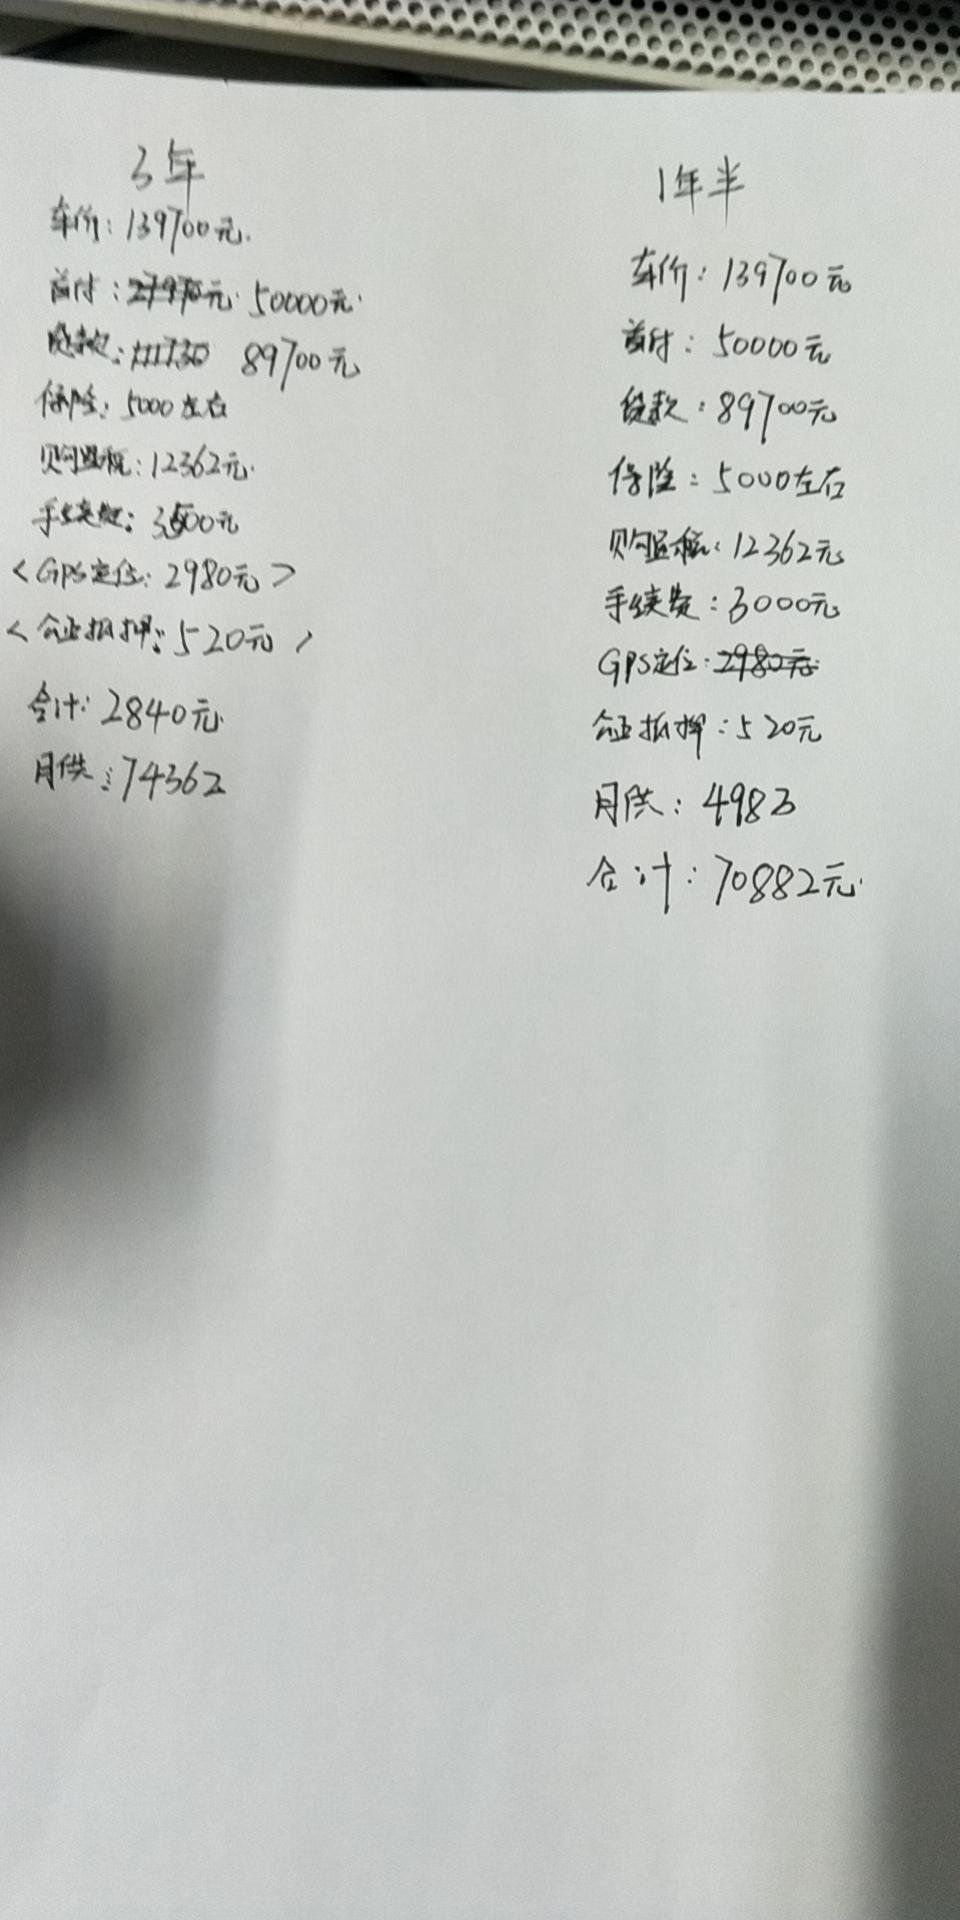 3年
车价：139700元.
首付：27970元 50000元.
贷款：111730 89700元
保险：5000左右
购置税：12362元.
手续费：3500元
<GPS定位：2980元>
<公证抵押：520元>
合计：2840元
月供：74362
1年半
车价：139700元
首付：50000元
贷款：89700元
保险：5000左右
购置税：12362元
手续费：3000元
GPS定位：2980元
公证抵押：520元
月供：4983
合计：70882元.